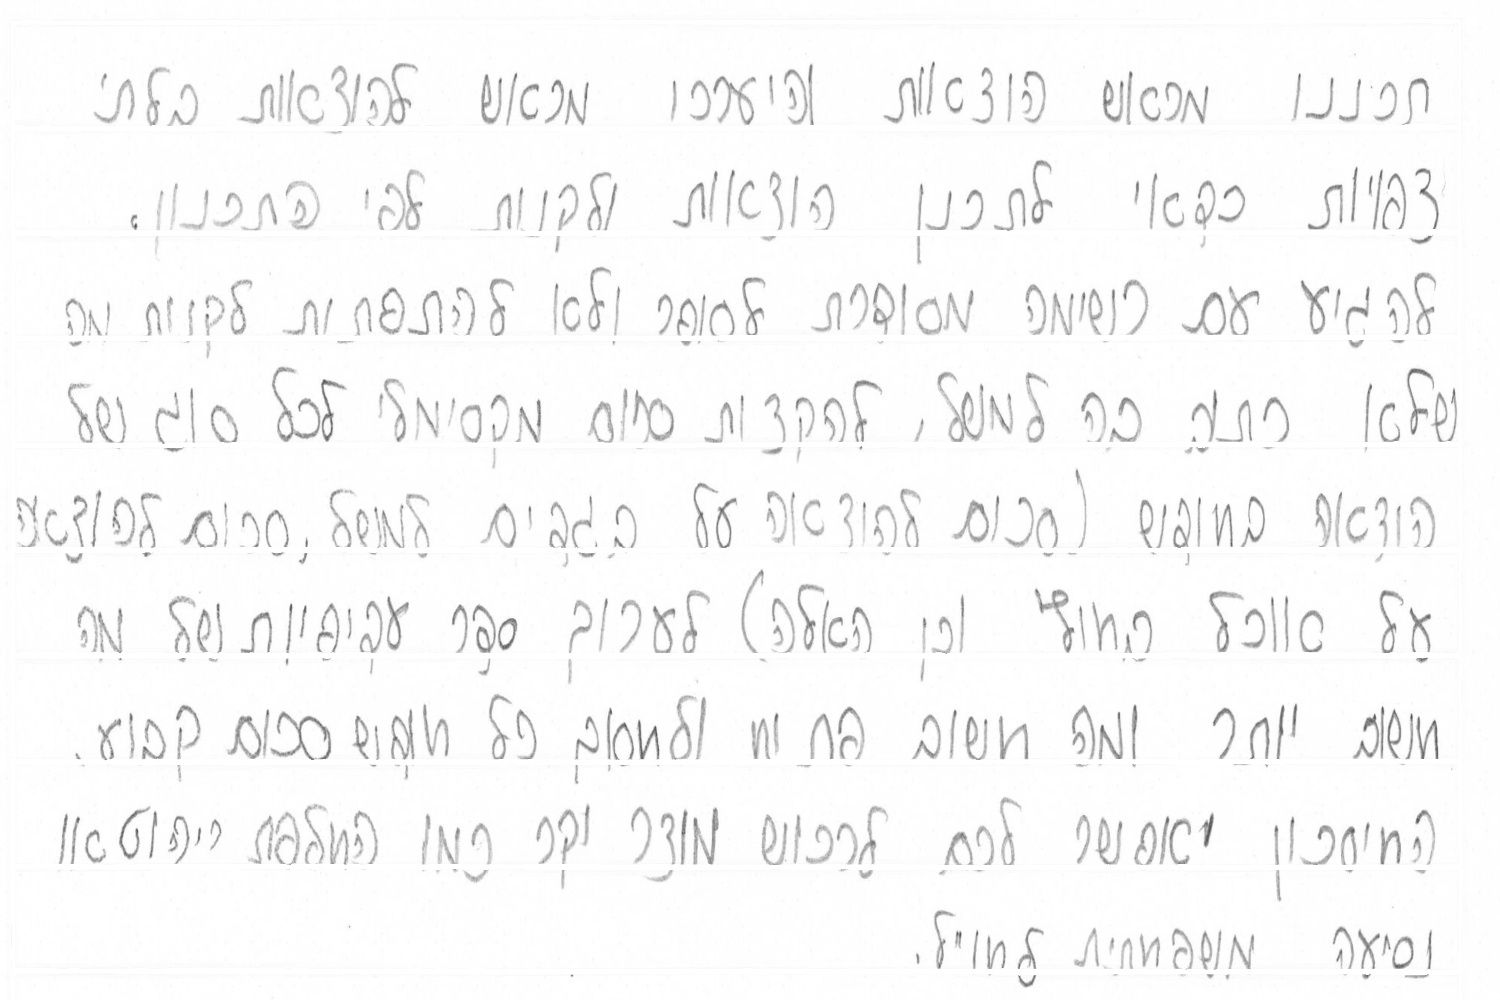 תכננו מראש הוצאות והיערכו מראש להוצאות בלתי
צפויות כדאי לתכנן הוצאות ולקנות לפי התכנון.
להגיע עם רשימה מסודרת לסופר ולא להתפתות לקנות מה
שלא כתוב בה למשל, להקצות סכום מקסימלי לכל סוג של
הוצאה בחופש (סכום להוצאה על בגדים למשל, סכום להוצאה
על אוכל בחוץ וכן האלה) לערוך סדר עדיפויות של מה
חשוב יותר ומה חשוב פחות ולחסוך כל חופש סכום קבוע.
החיסכון יאפשר לכם לרכוש מוצר יקר כמו החלפת ריהוט או
נסיעה משפחתית לחו״ל.